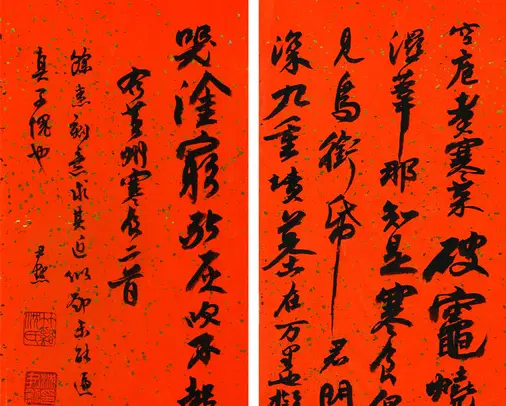 空庖煮寒菜破竈燒
濕葦那知是寒食但
見烏銜帋君門
深九重墳墓在万里也擬
哭塗窮死灰吹不起
右黄州寒食二首
刻意求其近似却未能逼
真可愧也
尹默